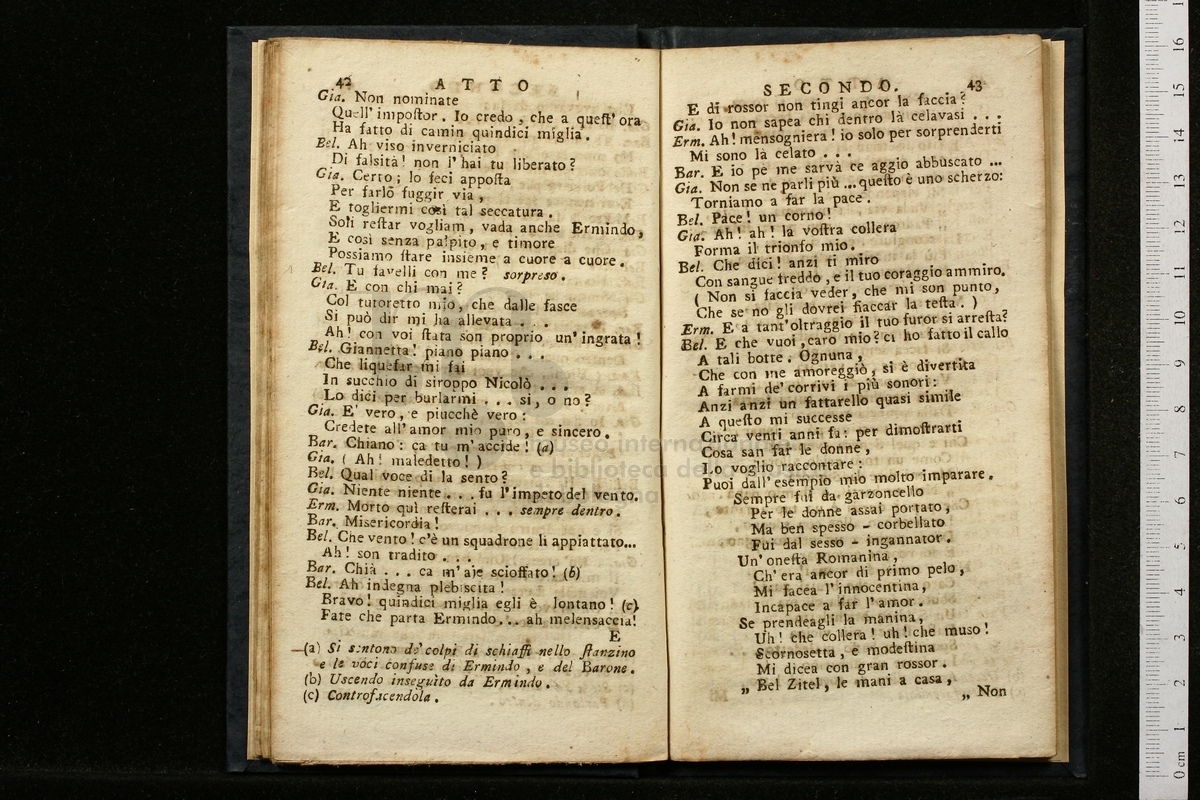 42 ATTO
Gia. Non nominate
Quell' impoſtor. Io credo, che a queſt' ora
Ha fatto di camin quindici miglia.
Bel. Ah viso inverniciato
Di falsità! non l'hai tu liberato?
Gia. Certo; lo feci appoſta
Per farlo fuggir via,
E togliermi così tal seccatura.
Soli reſtar vogliam, vada anche Ermindo,
E così senza palpito, e timore
Possiamo ſtare insieme a cuore a cuore.
Bel. Tu favelli con me? sorpreso.
Gia. E con chi mai?
Col tutoretto mio, che dalle fasce
Si può dir mi ha allevata . . .
Ah! con voi ſtata son proprio un' ingrata!
Bel. Giannetta! piano piano . . .
Che liquefar mi fai
In succhio di siroppo Nicolò . . .
Lo dici per burlarmi . . . si, o no?
Gia. E' vero, e piucchè vero:
Credete all' amor mio puro, e sincero.
Bar. Chiano: ca tu m' accide! (a)
Gia. ( Ah! maledetto! )
Bel. Qual voce di la sento?
Gia. Niente niente . . . fu l'impeto del vento.
Erm. Morto quì reſterai . . . sempre dentro.
Bar. Misericordia!
Bel. Che vento! c'è un squadrone lì appiattato...
Ah! son tradito . . .
Bar. Chià . . . ca m' aje scioffato! (b)
Bel. Ah indegna plebiscita!
Bravo! quindici miglia egli è lontano! (c)
Fate che parta Ermindo... ah melensaccia!
E
(a) Si sentono de' colpi di schiaffi nello ſtanzino
e le voci confuse di Ermindo, e del Barone.
(b) Uscendo inseguito da Ermindo.
(c) Controfacendola.
SECONDO. 43
E di rossor non tingi ancor la faccia?
Gia. Io non sapea chi dentro là celavasi . . .
Erm. Ah! mensogniera! io solo per sorprenderti
Mi sono là celato . . .
Bar. E io pe me sarvà ce aggio abbuscato ...
Gia. Non se ne parli più ... queſto è uno scherzo:
Torniamo a far la pace.
Bel. Pace! un corno!
Gia. Ah! ah! la voſtra collera
Forma il trionfo mio.
Bel. Che dici! anzi ti miro
Con sangue freddo, e il tuo coraggio ammiro.
( Non si faccia veder, che mi son punto,
Che se no gli dovrei fiaccar la teſta. )
Erm. E a tant' oltraggio il tuo furor si arreſta?
Bel. E che vuoi, caro mio? ci ho fatto il callo
A tali botte. Ognuna,
Che con me amoreggiò, si è divertita
A farmi de' corrivi i più sonori:
Anzi anzi un fattarello quasi simile
A queſto mi successe
Circa venti anni fa: per dimoſtrarti
Cosa san far le donne,
Lo voglio raccontare:
Puoi dall' esempio mio molto imparare.
Sempre fui da garzoncello
Per le donne assai portato,
Ma ben spesso - corbellato
Fui dal sesso - ingannator.
Un' oneſta Romanina,
Ch' era ancor di primo pelo,
Mi facea l' innocentina,
Incapace a far l' amor.
Se prendeagli la manina,
Uh! che collera! uh! che muso!
Scornosetta, e modeſtina
Mi dicea con gran rossor.
„ Bel Zitel, le mani a casa,
„ Non